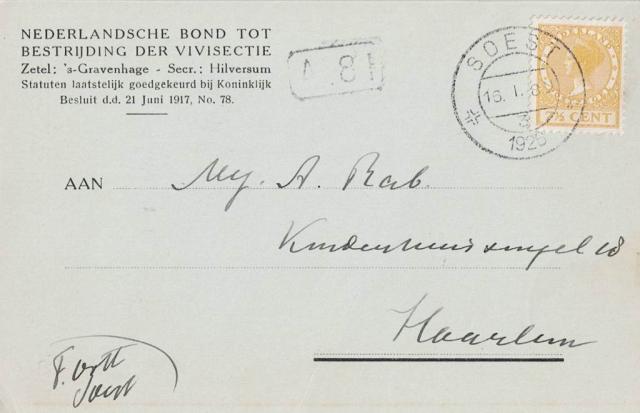 NEDERLANDSCHE BOND TOT
BESTRIJDING DER VIVISECTIE
Zetel: 's-Gravenhage - Secr.: Hilversum
Statuten laatstelijk goedgekeurd bij Koninklijk
Besluit d.d. 21 Juni 1917, No. 78.
A.81
SOEST
16.1.8
1926
7½ CENT
AAN Mej. A. Rab.
Kinderhuissingel 18
Haarlem
F. Ortt
Soest